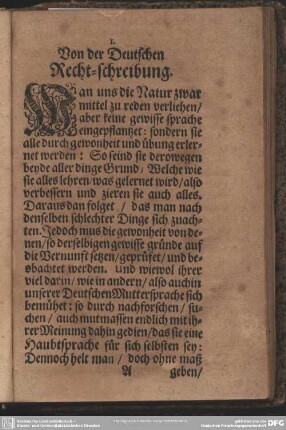 1.
Von der Deutschen
Recht-schreibung.
WAn uns die Natur zwar
mittel zu reden verliehen/
aber keine gewisse sprache
eingepflantzet: sondern sie
alle durch gewonheit und übung erler-
net werden: So seind sie derowegen
beyde aller dinge Grund/ Welche wie
sie alles lehren/ was gelernet wird/ also
verbessern und zieren sie auch alles.
Daraus dan folget/ das man nach
denselben schlechter Dinge sich zuach-
ten. Jedoch mus die gewonheit von de-
nen/ so derselbigen gewisse gründe auf
die Vernunft setzen/ geprüfet/ und be-
obachtet werden. Und wiewol ihrer
viel darin/ wie in andern/ also auch in
unserer Deutschen Muttersprache sich
bemühet: so durch nachforschen/ su-
chen/ auch mutmassen endlich mit ih-
rer Meinung dahin gedien/ das sie eine
Haubtsprache für sich selbsten sey:
Dennoch helt man/ doch ohne maß
A geben/